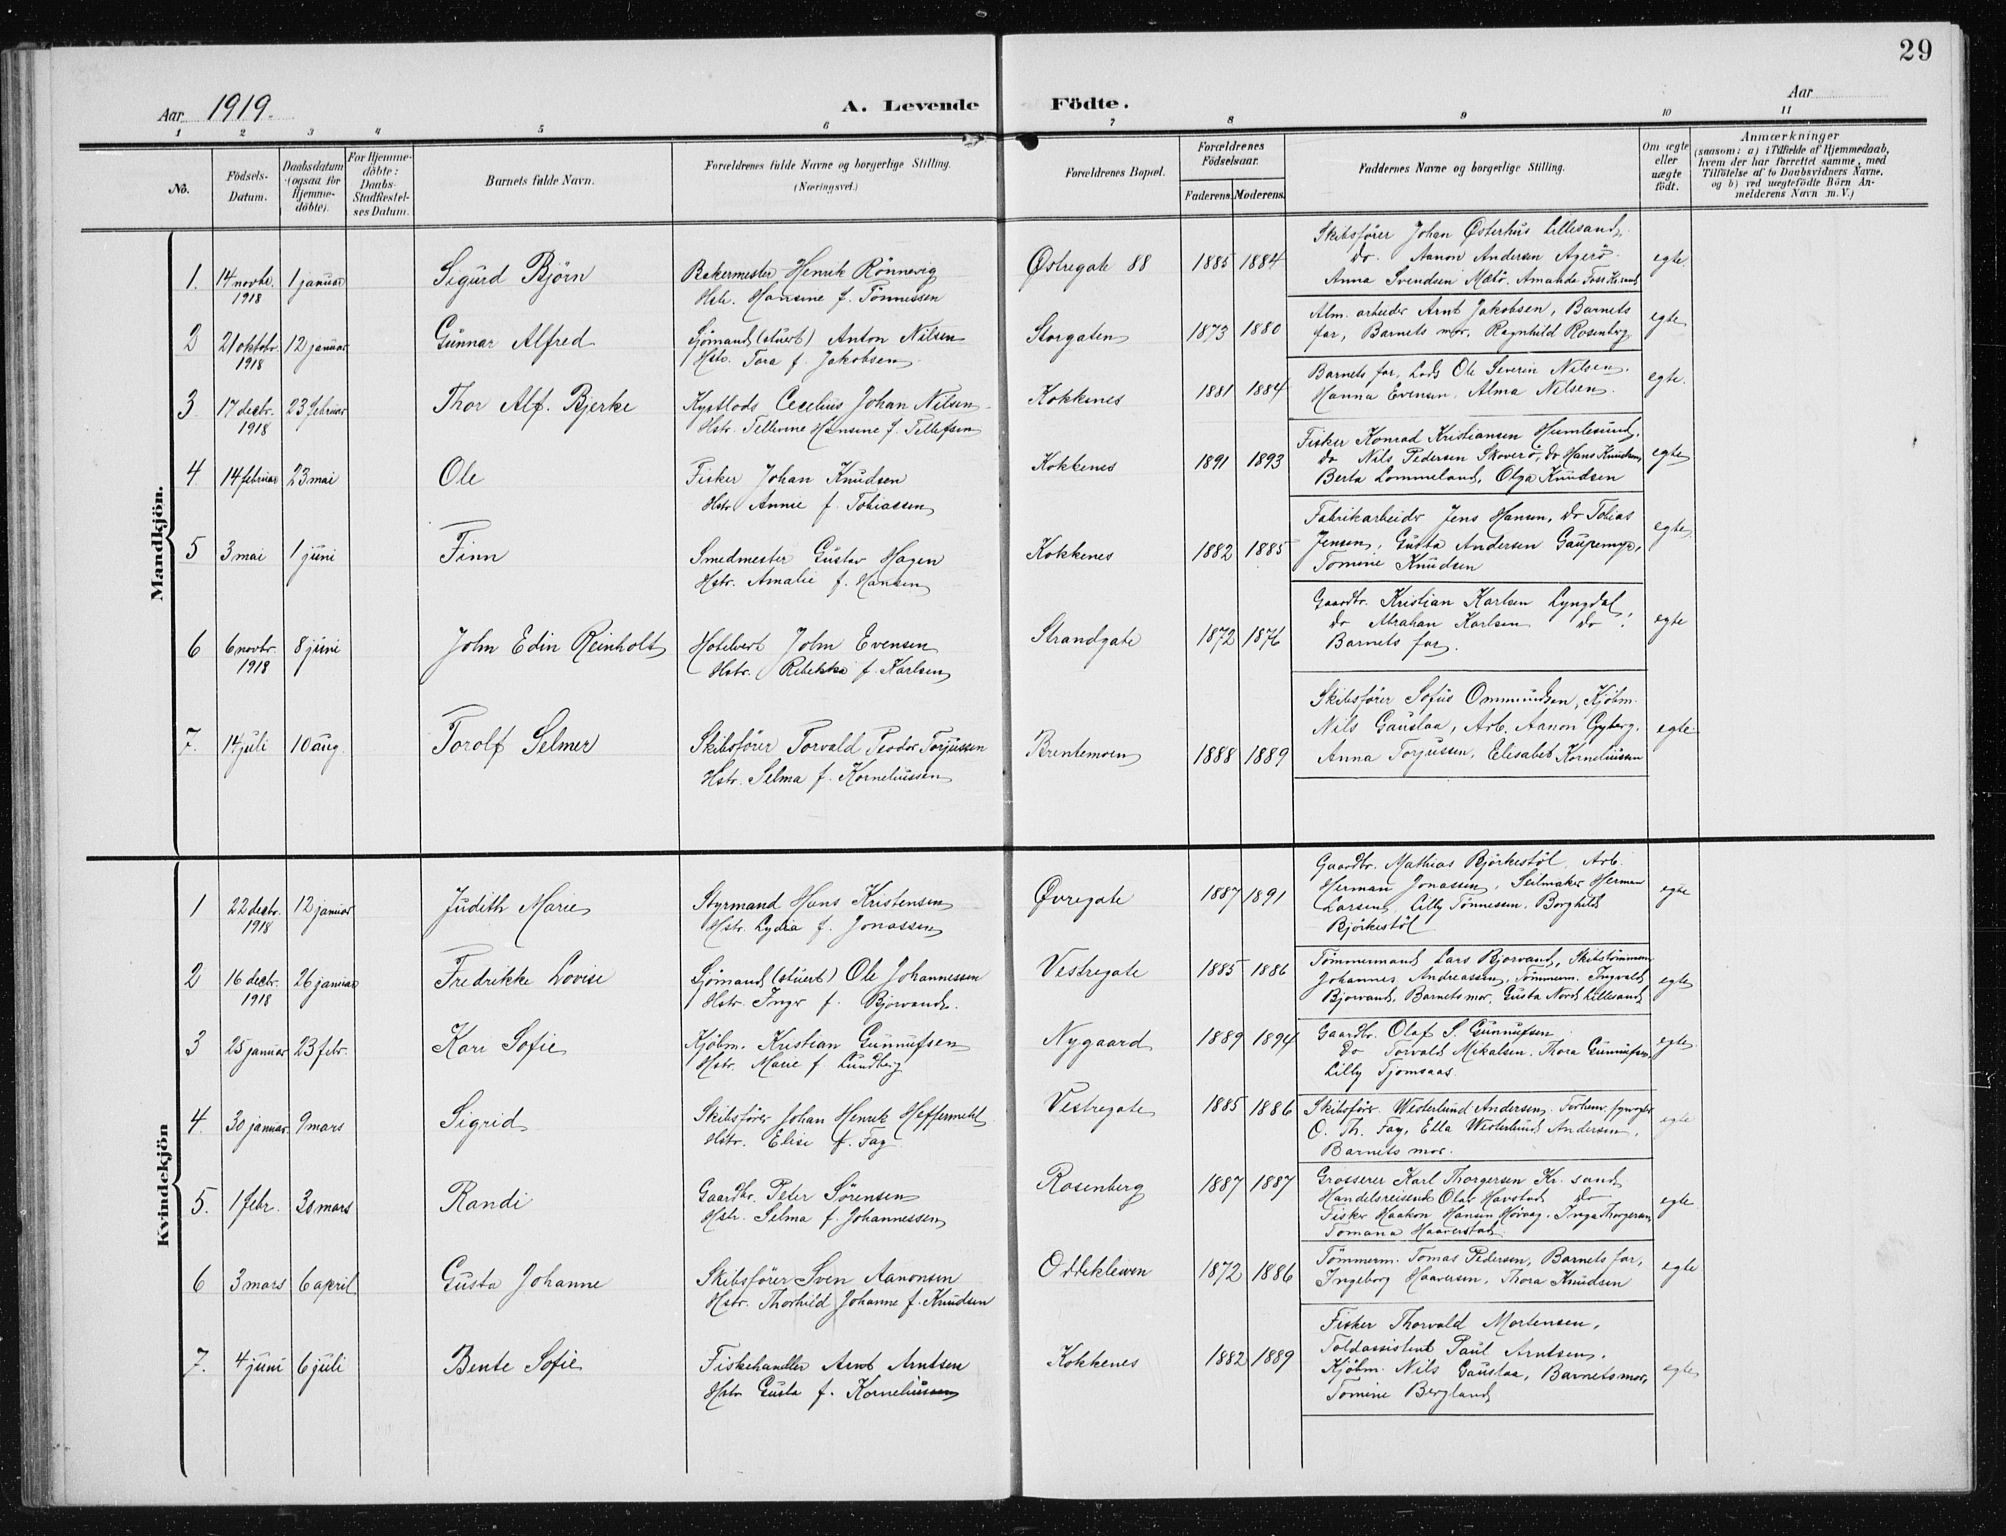 29
Aar 1919.
A. Levende Födte.
Aar
1 2 3 4 5 6 7 8 9 10 11
No.
Födsels-Datum.
Daabsdatum (ogsaa for Hjemme-döbte).
For Hjemme-döbte: Daabs-Stadfæstel-ses Datum.
Barnets fulde Navn.
Forældrenes fulde Navne og borgerlige Stilling. (Næringsvei.)
Forældrenes Bopæl.
Forældrenes Födselsaar.
Faderens. Moderens.
Faddernes Navne og borgerlige Stilling.
Om ægte eller uægte födt.
Anmærkninger
(saasom: a) i Tilfælde af Hjemmedaab, hvem der har forrettet samme, med Tilföielse af to Daabsvidners Navne, og b) ved uægtefödte Börn An-melderens Navn m. V.)
Mandkjön.
1. 14 novbr. 1918 1 januar Sigurd Björn
Bakermester Henrik Rönnevig
Hstr. Hansine f. Tönnessen
Østregate 88 1885 1884
Skibsfører Johan Østerhus Lillesand,
do. Aanon Andersen Agerö
Anna Svendsen Mebö. Amanda Foss Kr.sand
egte.
2 21 oktobr. 1918 12 januar Gunnar Alfred
Sjömand (stuert) Anton Nilsen
Hstr. Tora f. Jakobsen
Storgaten 1873 1880
Alm. arbeider Arnt Jakobsen, Barnets
far, Barnets mor, Ragnhild Rosenberg
egte
3. 17 decbr. 1918 23 februar Thor Alf. Bjerke
Kystlods Cecelius Johan Nilsen
Hstr. Tellevine Hansine f. Tellefsen
Kokkenes 1881 1884
Barnets far, Lods Ole Severin Nilsen,
Hanna Evensen, Alma Nilsen.
egte.
4. 14 februar 23 mai Ole
Fisker Johan Knudsen
Hstr. Annie f. Tobiassen
Kokkenes 1891 1893
Fisker Konrad Kristiansen Humlesund,
do Nils Pedersen Skoverö, do Hans Knudsen,
Berta Lommeland, Olga Knudsen
egte
5 3 mai 1 juni Finn
Smedmester Gustav Hagen
Hstr. Amalie f. Hansen
Kokkenes 1882 1885
Fabrikarbeider Jens Hansen, do Tobias
Jensen, Gusta Andersen Gauremyr,
Tomine Knudsen
egte
6 6 novbr. 1918 8 juni John Edin Reinholt
Hotelvert John Evensen
Hstr. Rebekka f. Karlsen
Strandgate 1872 1876
Gaardbr. Kristian Karlsen Lyngdal,
do Abrahan Karlsen do
Barnets far.
egte
7. 14 juli 10 aug. Torolf Selmer
Skibsförer Torvald Peder Torjussen
Hstr. Selma f. Korneliussen
Brentemoen 1888 1889
Skibsfører Sofus Ommundsen, Kjöbm.
Nils Gauslaa, Arb. Aanon Gyberg,
Anna Torjussen, Elisabet Korneliussen
egte
Kvindekjön
1 22 decbr. 1918 12 januar Judith Marie
Styrmand Hans Kristensen
Hstr. Lydia f. Jonassen
Øvregate 1887 1891
Gaardbr. Mathias Björkestöl, Arb.
Herman Jonassen, Seilmaker Herman
Larsen, Lilly Tönnessen, Borghild
Björkestöl
egte
2 16 decbr. 1918 26 januar Fredrikke Lovise
Sjömand (stuert) Ole Johannessen
Hstr. Inger f. Bjorvand.
Vestregate 1885 1886
Tömmermand Lars Bjorvand, Skibstömmerm
Johannes Andreassen, Tömmerm. Ingvald
Bjorvand, Barnets mor, Gusta Nord Lillesand
egte
3 25 januar 23 febr. Kari Sofie
Kjöbm. Kristian Gunnufsen
Hstr. Marie f. Lundberg
Nygaard 1889 1894
Gaardbr. Olaf S. Gunnufsen
do Torvald Mikalsen. Thora Gunnufsen,
Lilly Tjomsaas.
egte
4. 30 januar 9 mars Sigrid
Skibsförer Johan Henrik Heffermehl
Hstr. Elise f. Fay
Vestregate 1885 1886
Skibsför. Westerlund Andersen, Forhenv.
O. Th. Fay, Ella Westerlund Andersen,
Barnets mor.
egte
5. 1 febr. 30 mars Randi
Gaardbr. Peter Sörensen
Hstr. Selma f. Johannessen
Rosenberg 1887 1887
Grosserer Karl Thorgersen Kr. sand
Handelsreisende Olav Havstad do
Fisker Haakon Hansen Hövaag. Inga Thorgersen
Tomana Haaverstad
egte
6 3 mars 6 april Gusta Johanne
Skibsförer Sven Aanonsen
Hstr. Thorhild Johanne f. Knudsen
Oddekleven 1872 1886
Tömmerm. Tomas Pedersen, Barnets far,
Ingeborg Haaversen, Thora Knudsen
egte
7. 4 juni 6 juli Bente Sofie
Fiskehandler Arnt Arntsen
Hstr Gusta f. Korneliussen
Kokkenes 1882 1889
Fisker Thorvald Mortensen,
Toldassistent Paul Arntsen,
Kjöbm. Nils Gauslaa, Barnets mor,
Tomine Bergland
egte